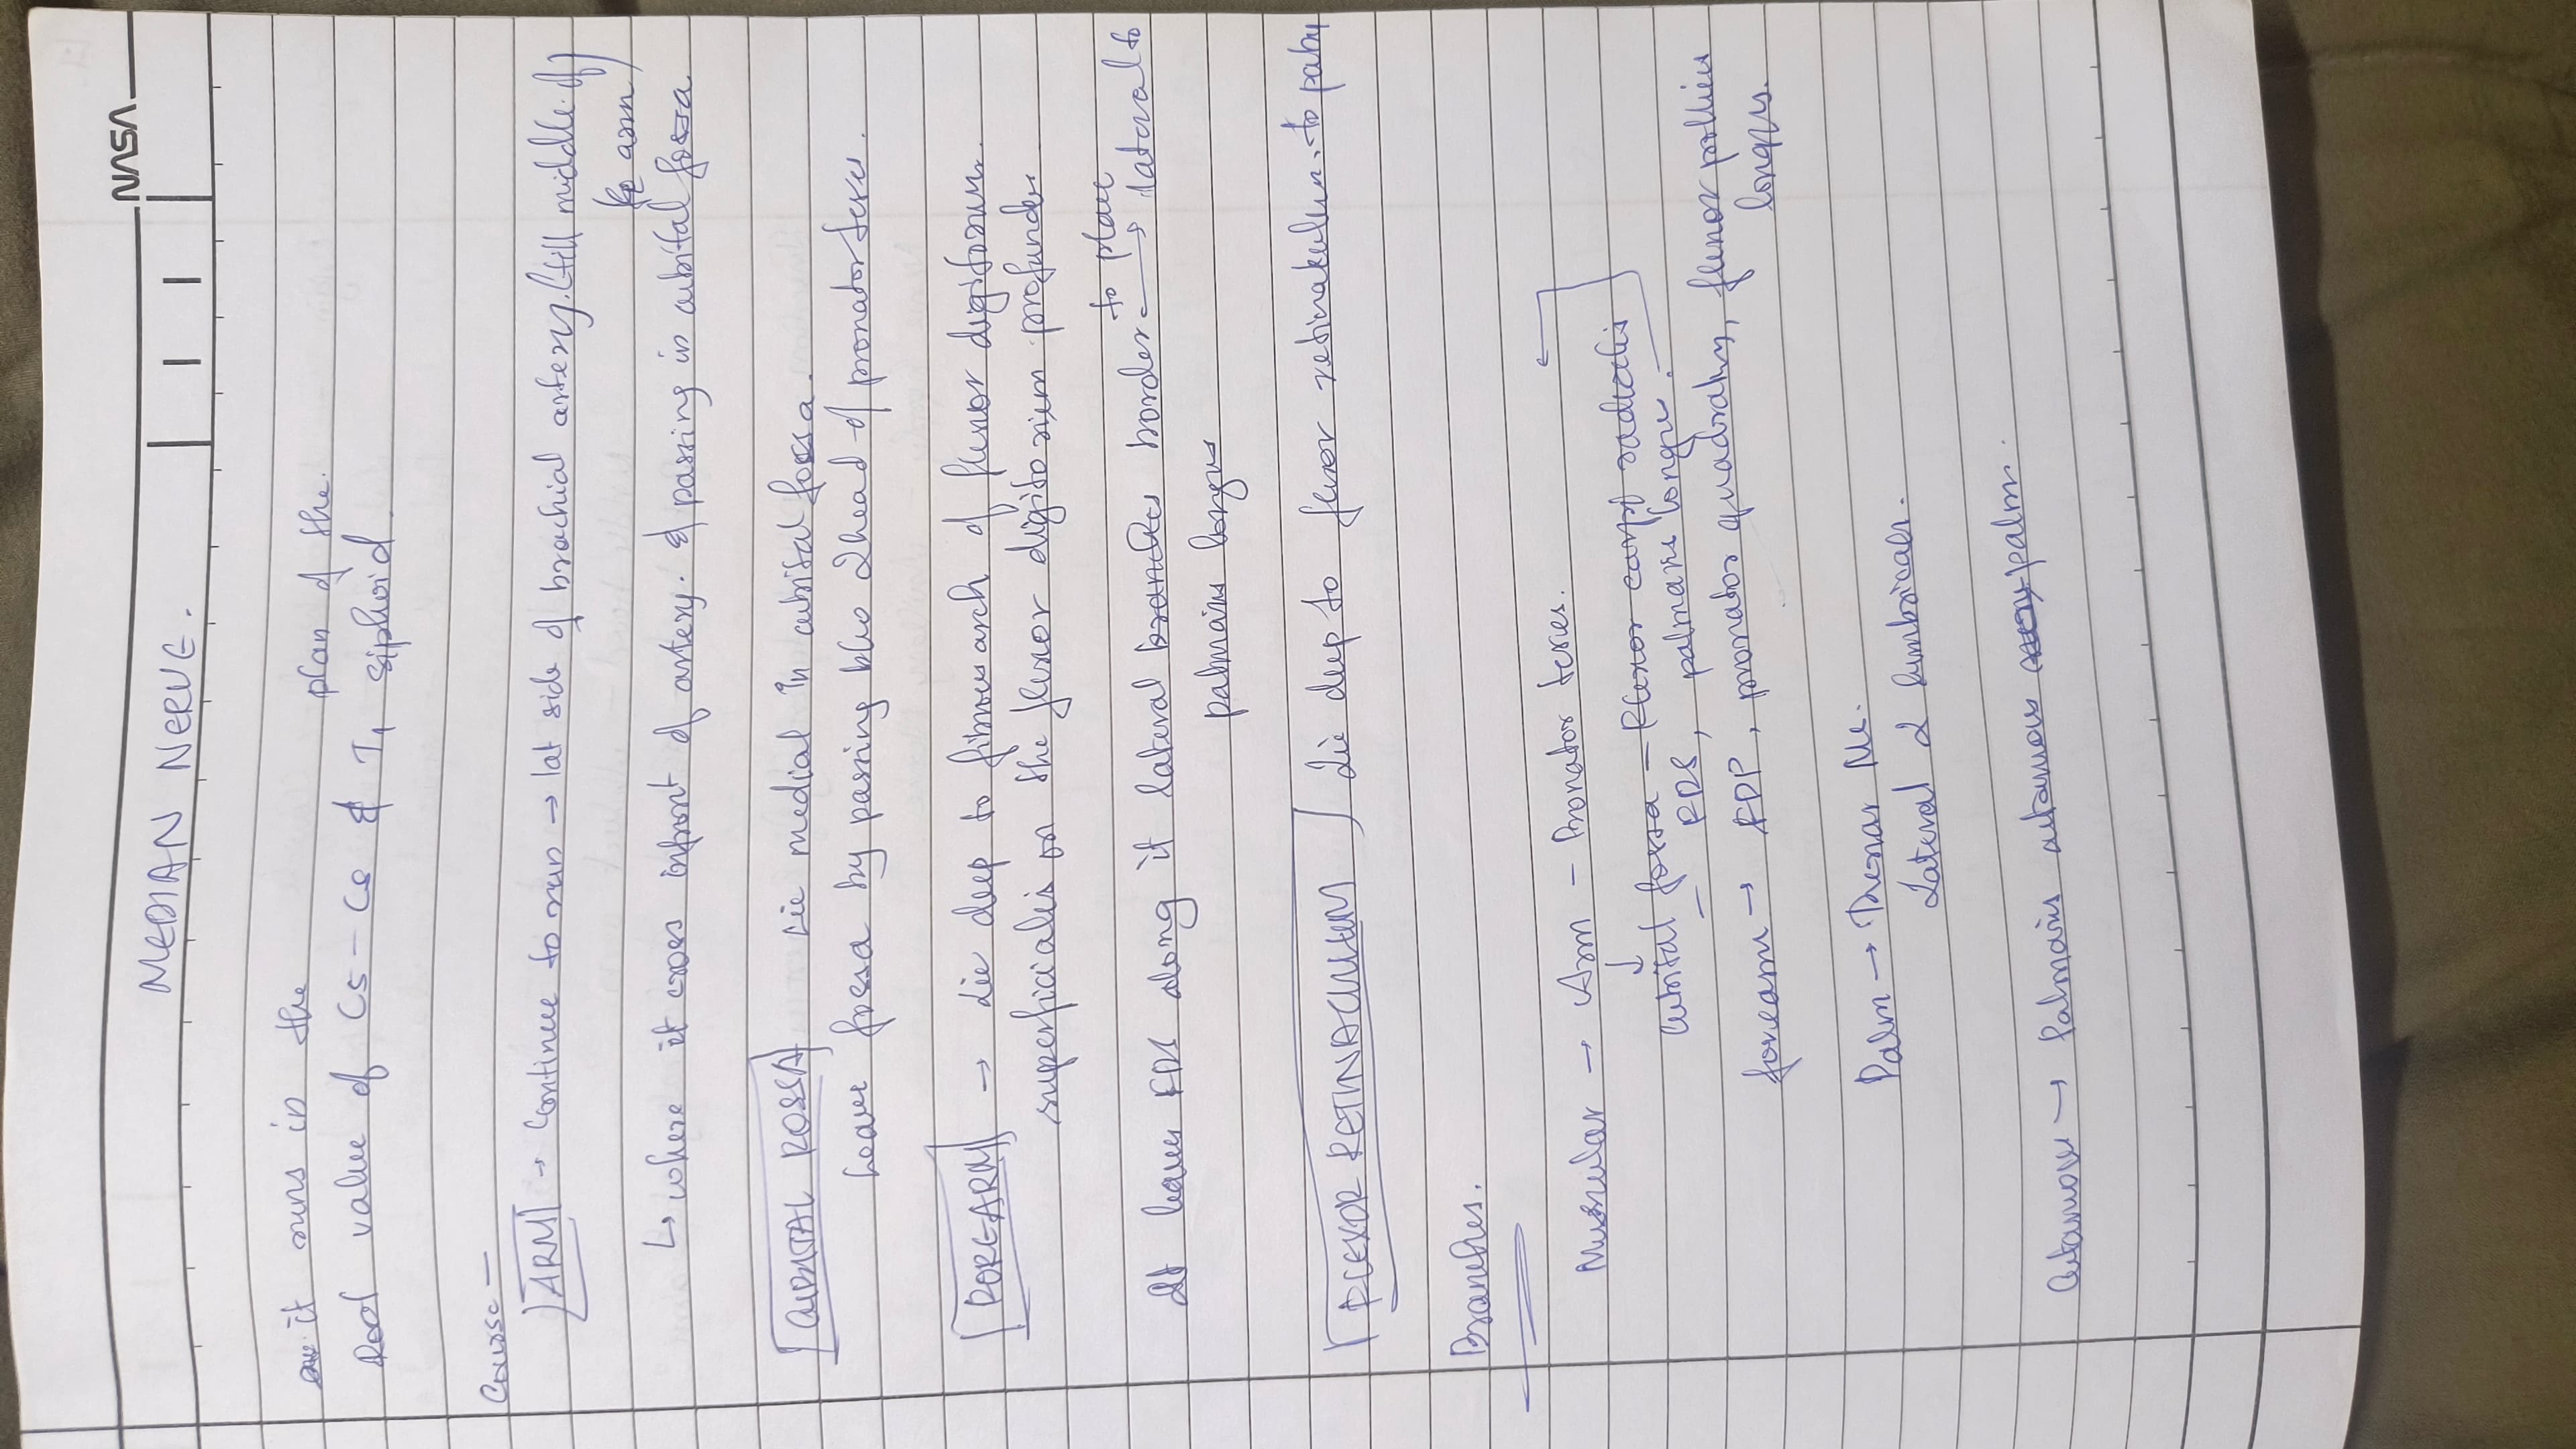 NASA
MEDIAN NERVE.
it runs in the plan of the.
Root value of C5 - C8 & T1 siphoid.
Course -
ARM → Continue to run → lat side of brachial artery. (till middle of the arm)
↳ where it cross infront of artery. & passing in cubital fossa
CUBITAL FOSSA Lie medial In cubital fossa.
Leave fossa by passing b/w 2 head of pronator teres.
FOREARM → Lie deep to fibrous arch of flexor digitorum.
superficialis on the flexor digitorium profundus
It leaves FDS along it lateral border → to place lateral to
palmaris longus
FLEXOR RETINACULUM Lie deep to flexor retinakulum. to palm
Branches.
Muscular → Arm - Pronator teres.
Cubital fossa - Flexor carpi radialis
- FDS, palmaris longus.
foream → FDP, pronator quadratus, flexor pollies
longus.
Palm → Thenar Ms.
Lateral 2 lumbricals.
Cutanous → Palmaris cutanous palm.